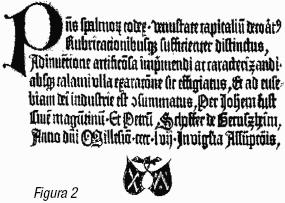 Pñs spalmoꝝ codex . venustate capitaliũ decoratꝰ
Rubricationibusqꝫ sufficienter distinctus,
Adinuentione artificiosa imprimendi ac caracterizandi .
absqꝫ calami vlla exaracõne sic effigiatus, Et ad euse
biam dei industrie est ꝯsummatus, Per Johem fust
Ciuem magũtinũ . Et Petrũ Schoffer de Gernszheim,
Anno dñi Millesimo . cccc . lvij . In vigĩlia Assũpcõis,
Figura 2